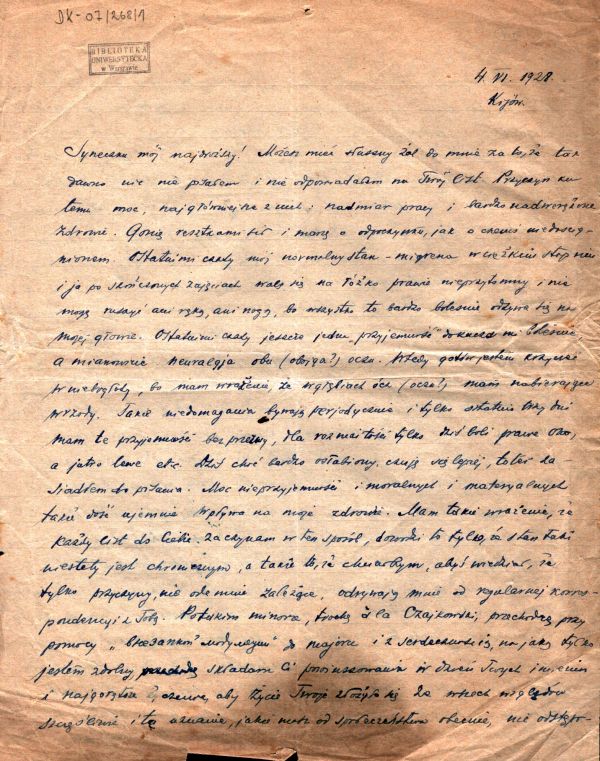 DK-07/268/1
BIBLIOTEKA
UNIWERSYTECKA
w Warszawie
4. VI. 1928.
Kijów.
Syneczku mój najdroższy! Możesz mieć słuszny żal do mnie za to, że tak
dawno nic nie pisałem i nie odpowiadałem na Twój list. Przyczyn ku
temu moc, najgłówniejsze z nich: nadmiar pracy i bardzo nadwyrężone
zdrowie. Gonię resztkami sił i marzę o odpoczynku, jak o czemś niedościg-
nionem. Ostatnimi czasy mój normalny stan - migrena w ciężkim stopniu
i ja po skończonych zajęciach walę się na łóżko prawie nieprzytomny i nie
mogę ruszyć ani ręką, ani nogą, bo wszystko to bardzo boleśnie odzywa się na
mojej głowie. Ostatnimi czasy jeszcze jedna "przyjemność" dokucza mi boleśnie,
a mianowicie neuralgja obu (obojga?) oczu. Wtedy gotów jestem krzyczeć
w niebogłosy, bo mam wrażenie, że w głębiach ócz (oczu?) mam nabierające
wrzody. Takie niedomagania bywają perjodycznie i tylko ostatnie trzy dni
mam te przyjemność bez przerwy, dla rozmaitości tylko dziś boli prawe oko,
a jutro lewe etc. Dziś choć bardzo osłabiony, czuję się lepiej, toteż za-
siadłem do pisania. Moc nieprzyjemności i moralnych i materyalnych
także dość ujemnie wpływa na moje zdrowie. Mam takie wrażenie, że
każdy list do Ciebie zaczynam w ten sposób, dowodzi to tylko, że stan taki
niestety jest chronicznym, a także to, że chciałbym, abyś wiedział, że
tylko przyczyny, nie ode mnie zależące, odrywają mnie od regularnej korres-
pondencji z Tobą. Po takim minorze, trochę à la Czajkowski, przechodzę przy
pomocy do majoru i z serdecznością, na jaką tylko
jestem zdolny składam Ci powinszowania w dzień Twych imienin
i najgorętsze życzenia, aby życie Twoje złożyło się ze wszech względów
szczęśliwie i to uznanie, jakie masz od społeczeństwa obecnie, nie odstępo-